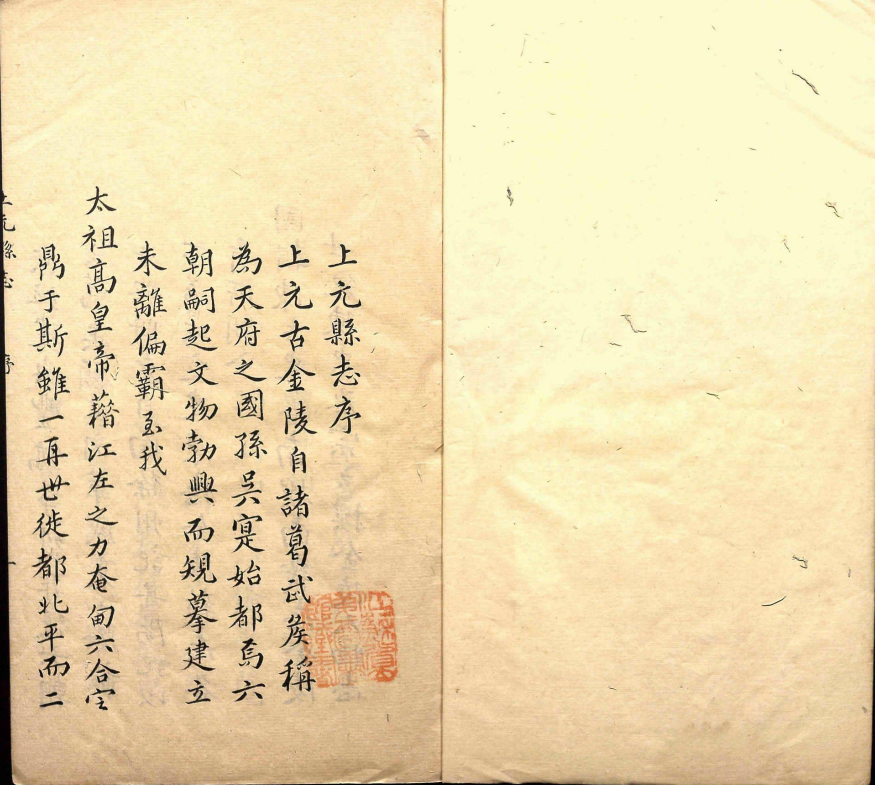 上元縣志序
上元古金陵自諸葛武侯稱
為天府之國孫吳寔始都焉六
朝嗣起文物勃興而規摹建立
未離偏霸至我
太祖高皇帝藉江左之力奄甸六合定
鼎于斯雖一再世徙都北平而二
上元縣志 序 一